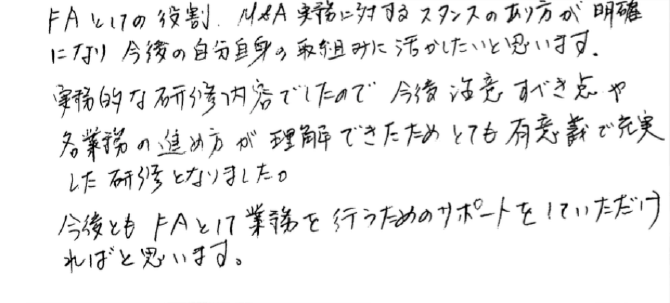 FAとしての役割、M&A実務に対するスタンスのあり方が明確
になり今後の自分自身の取組みに活かしたいと思います。
実務的な研修内容でしたので今後注意すべき点や
各業務の進め方が理解できたためとても有意義で充実
した研修となりました。
今後ともFAとして業務を行うためのサポートをしていただけ
ればと思います。